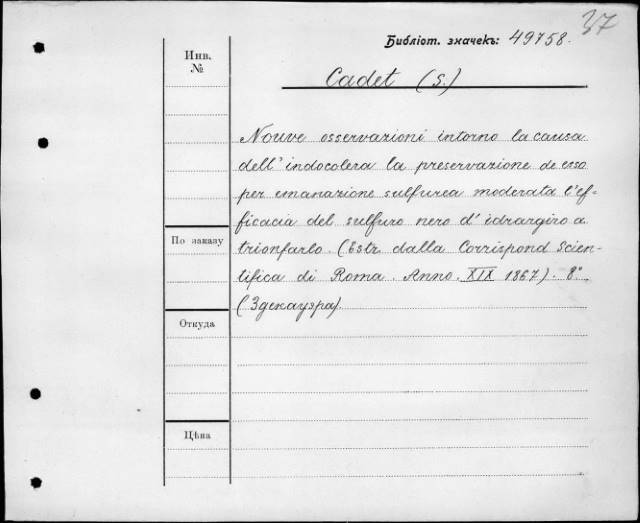 37
Библіот. значекъ: 49758.
Инв.
№
Cadet (S.)
Nouve osservazioni intorno la causa
dell' indocolera la preservazione de esso
per emanazione sulfurea moderata l'ef-
ficacia del sulfuro nero d' idrargiro a
trionfarlo. (Estr. dalla Corrispond Scien-
tifica di Roma. Anno. XIX 1867). 8°
(Здекауэра).
По заказу
Откуда
Цѣна